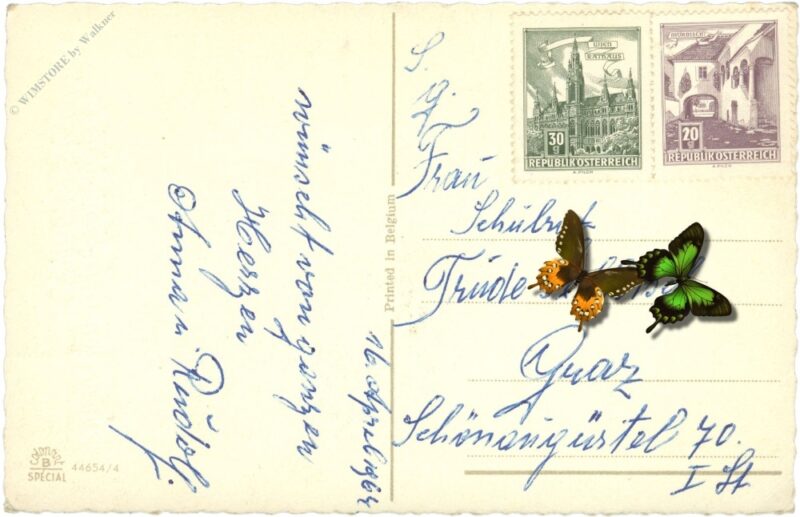 © WIMSTORE by Walkner
wünscht von ganzen
Herzen
Anna u. Rudolf.
16. April 1964
Printed in Belgium
COLORVIT
B
SPECIAL
44654/4
WIEN
RATHAUS
30
g
REPUBLIK ÖSTERREICH
A. PILCH
MÖRBISCH
20
g
REPUBLIK ÖSTERREICH
A. PILCH
S.
g.
Frau
Schulrat
Trude
Graz
Schönaugürtel 70.
I St